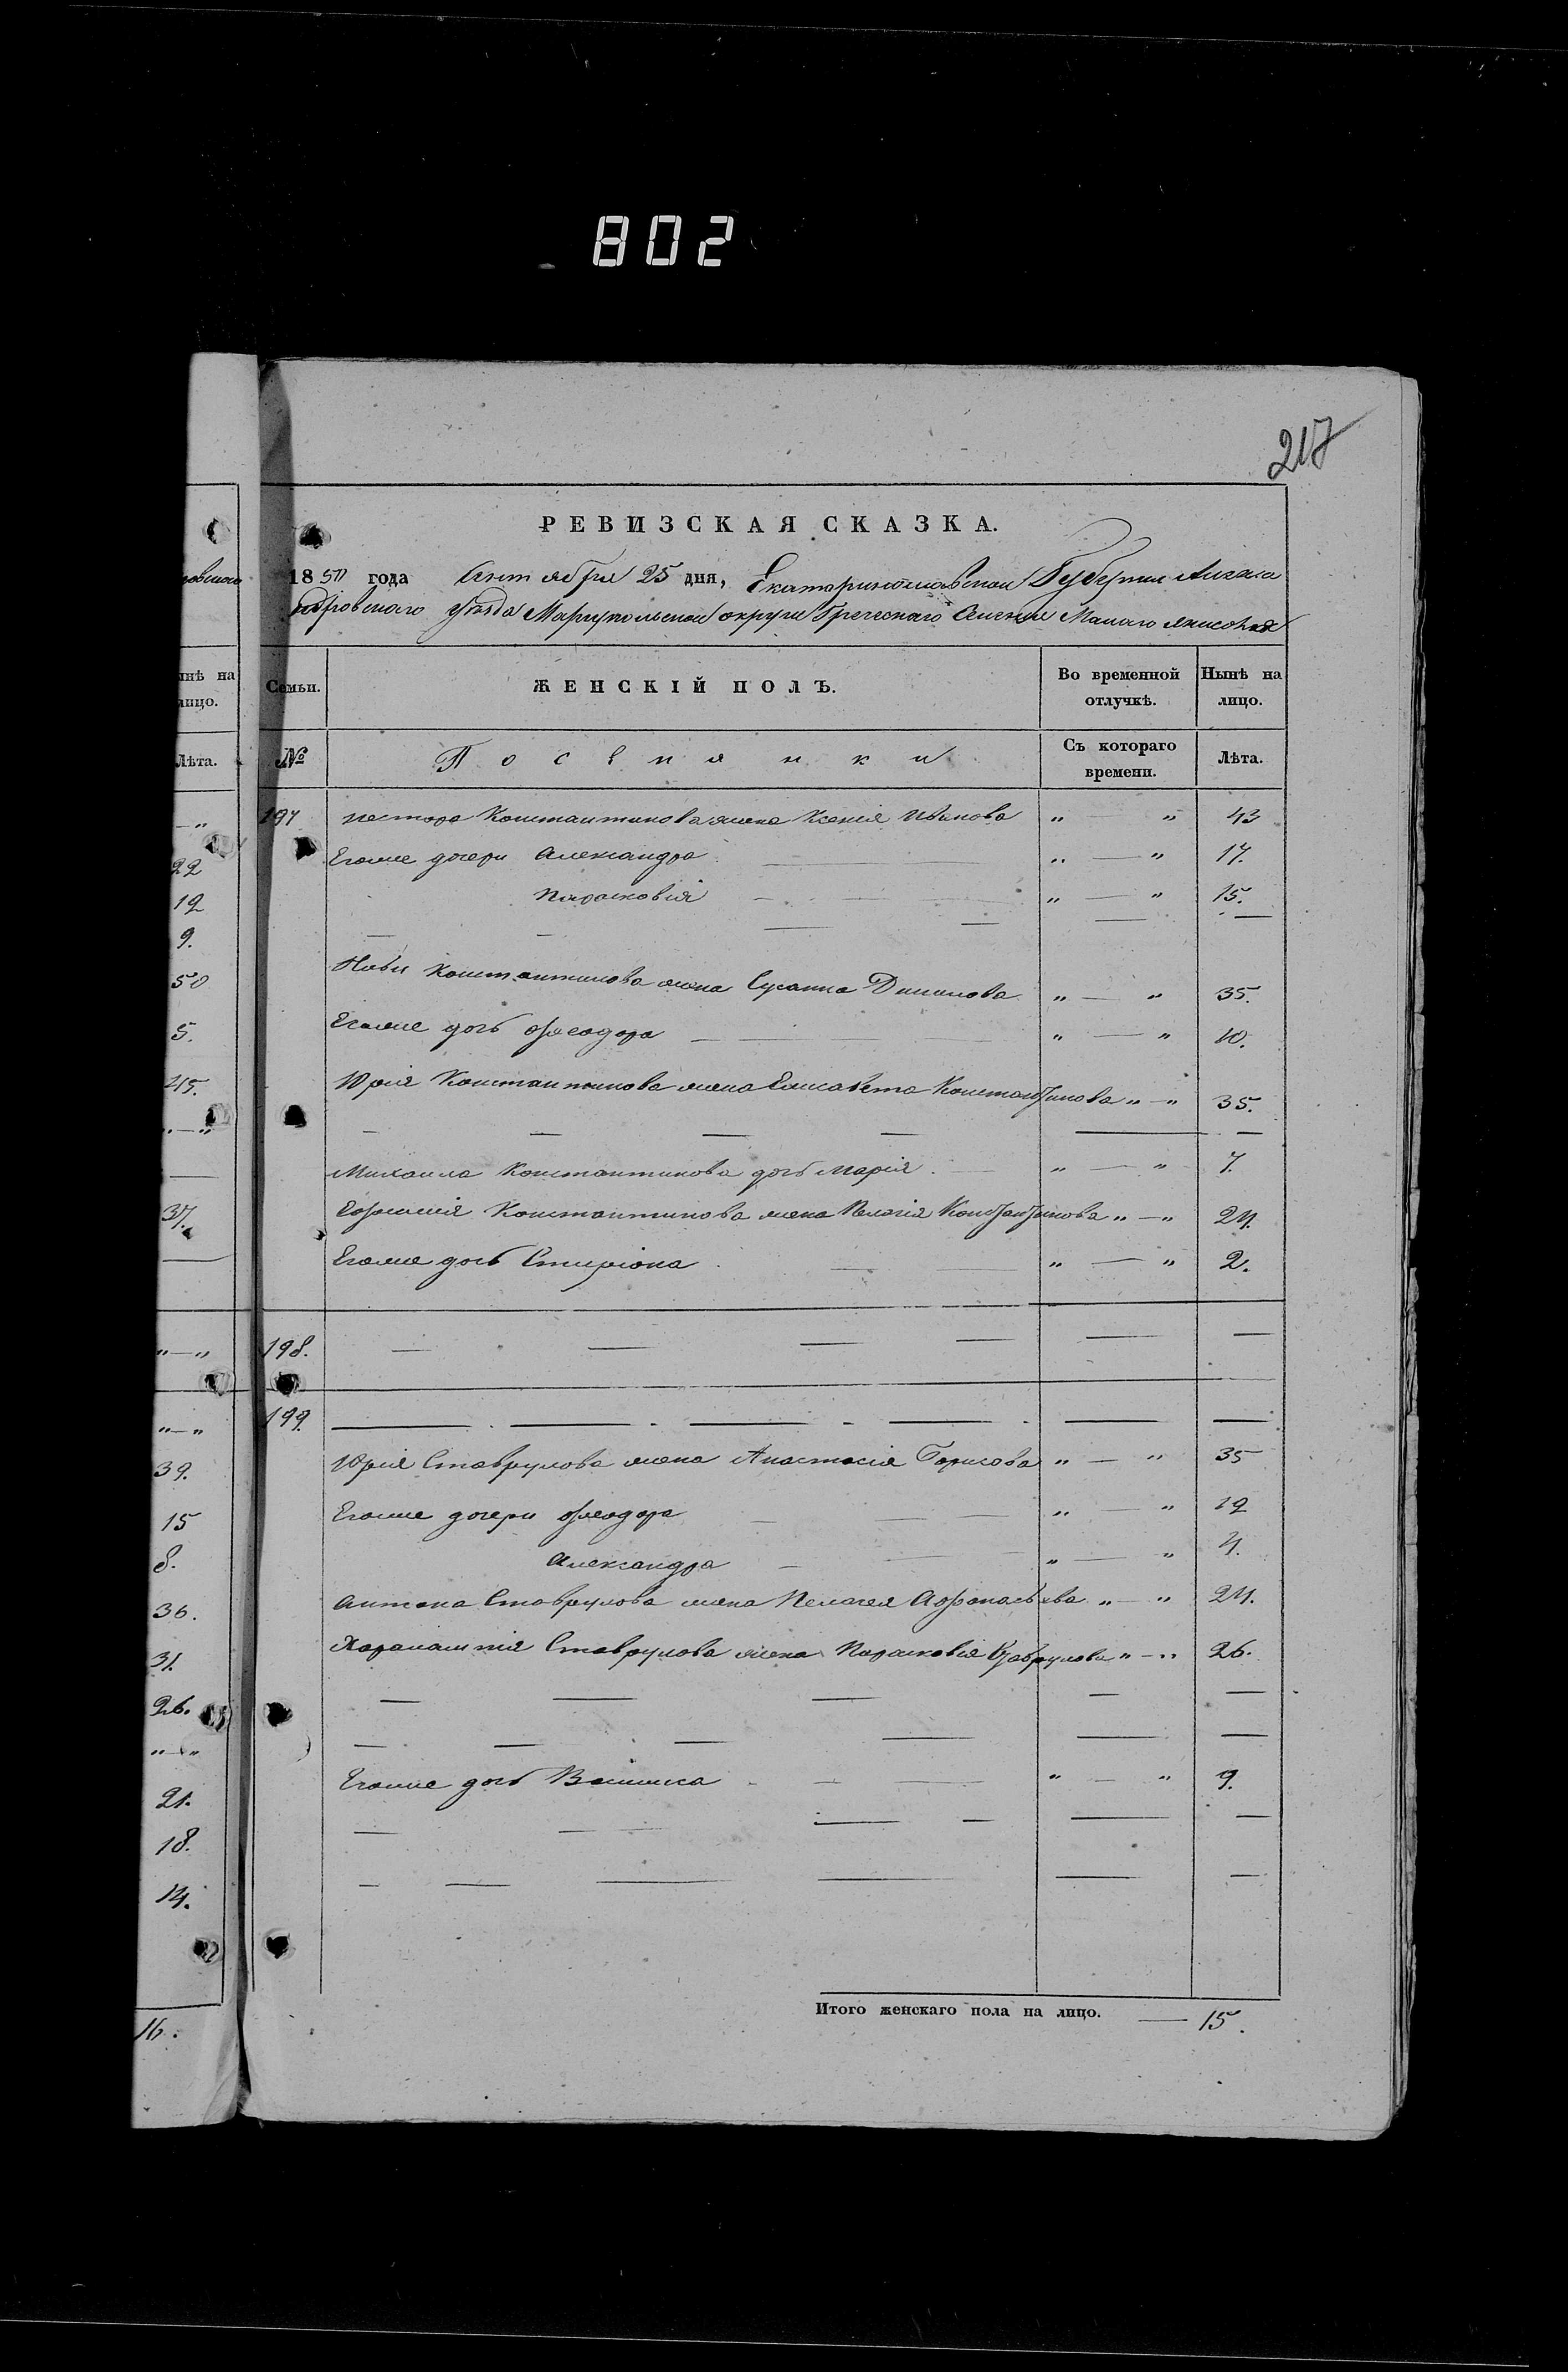 802
217
РЕВИЗСКАЯ СКАЗКА.
18 года Октября 25 дня, Екатеринославской Губернии Алекса
ндровского уѣзда Мариупольской округи Греческаго Селенія Малаго Янисоля
Семьи. ЖЕНСКІЙ ПОЛЪ. Во временной отлучкѣ. Нынѣ на лицо.
№ Поселянки Съ котораго времени. Лѣта.
197 Нестора Константинова жена Ксенія Иванова „ — „ 43
Егоже дочери Александра „ — „ 17.
Парасковія „ — „ 15.
Константинова жена Сусанна „ — „ 35.
Егоже дочь Ѳеодора „ — „ 10.
Юрія Константинова жена Елисавета Константинова „ — „ 35.
Михаила Константинова дочь Марія „ — „ 7.
Константинова жена Пелагія Константинова „ — „ 24.
Егоже дочь „ — „ 2.
198.
199.
Юрія Ставрулова жена Анастасія Борисова „ — „ 35
Егоже дочери Ѳеодора „ — „ 12
Александра „ — „ 4.
Антона Ставрулова жена Пелагея Афонасьева „ — „ 24.
Харлампія Ставрулова жена Парасковія Ставрулова „ — „ 26.
Егоже дочь „ — „ 9.
Итого женскаго пола на лицо. — 15.
ровскаго
нѣ на
лицо.
Лѣта.
— „
22
12
9.
50
5.
45.
„ — „
37.
„ — „
„ — „
39.
15
8.
36.
31.
26.
„ — „
21.
18.
14.
16.